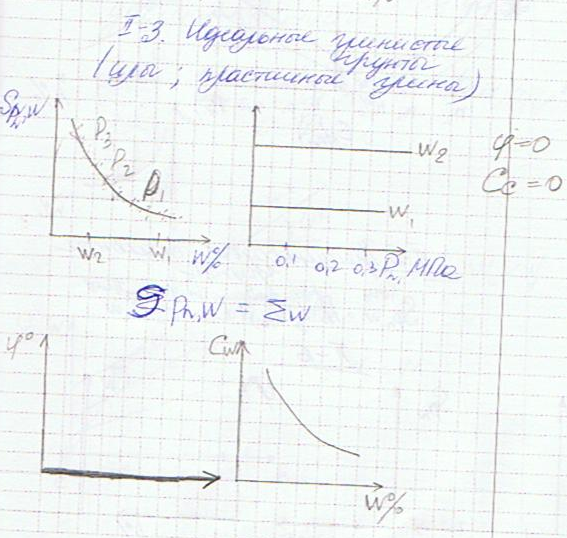 II-3. Идеальные глинистые
грунты
(илы; пластичные глины)
Spn,w
P3
P2
P1
W2
W1
W%
W2
W1
0,1
0,2
0,3
Pn, МПа
φ=0
Cc=0
Spn,w = Σw
φ°
Cw
W%